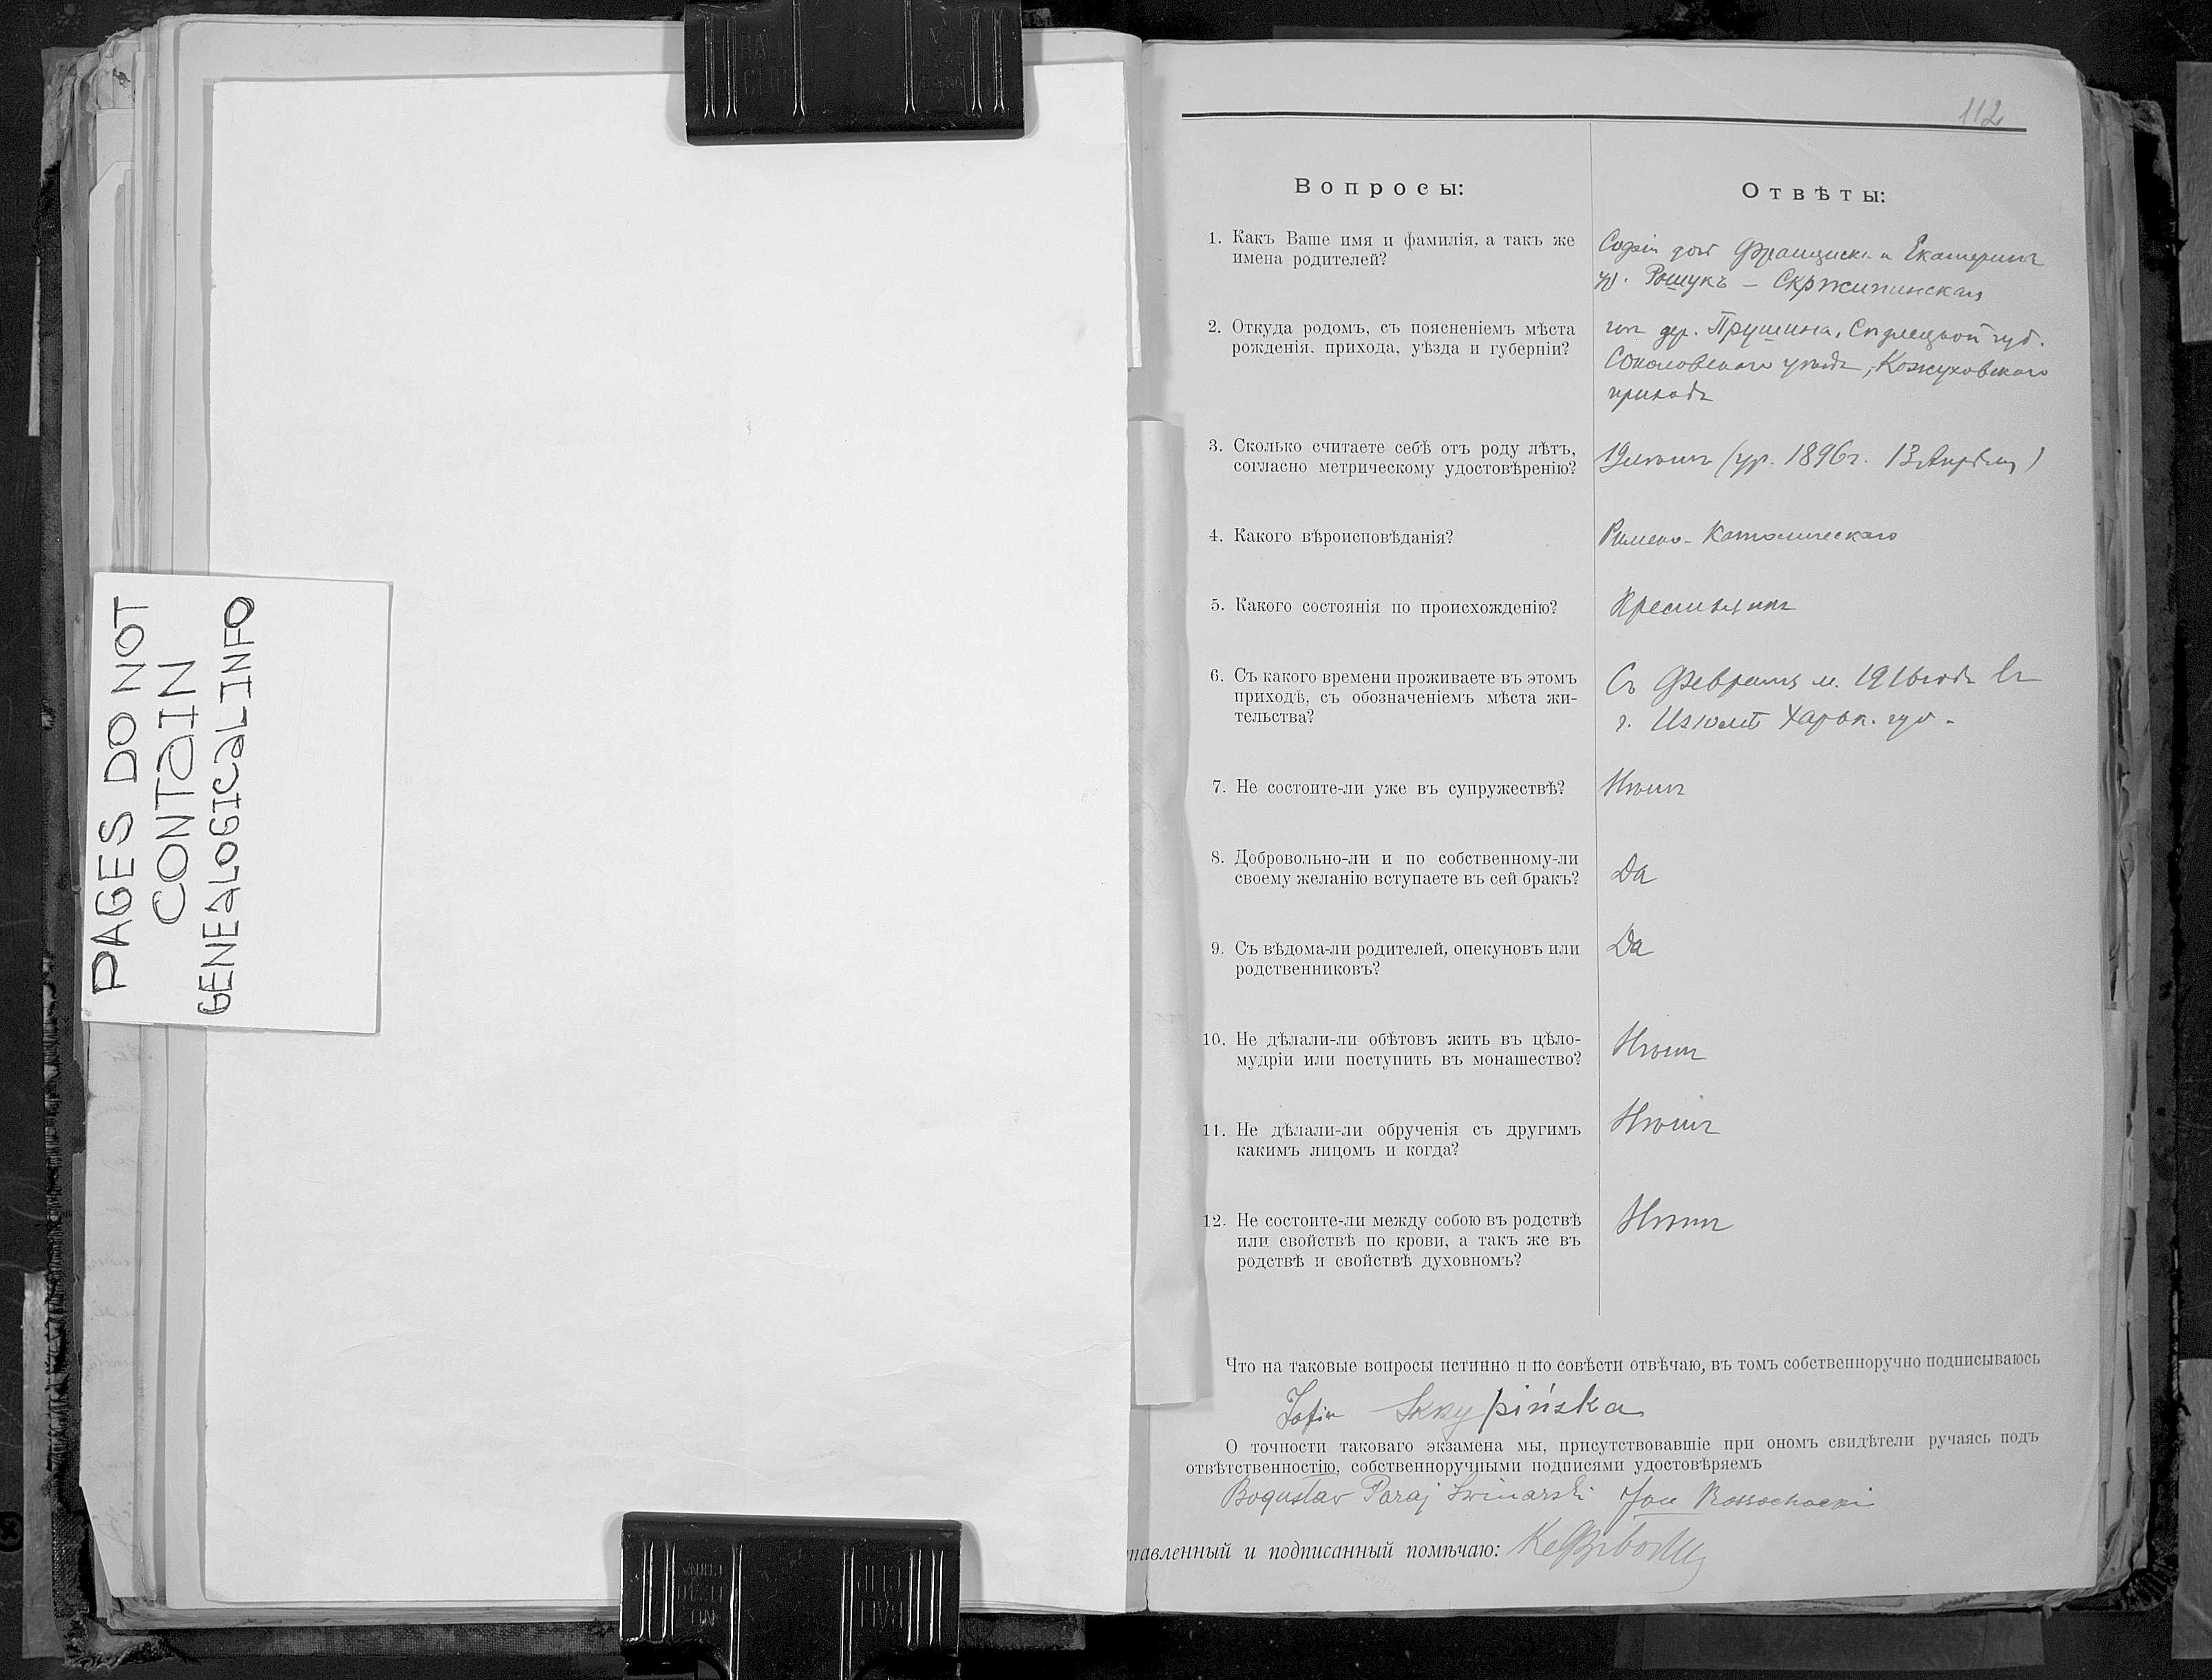 PAGES DO NOT
CONTAIN
GENEALOGICAL INFO
112
Вопросы:
Отвѣты:
1. Какъ Ваше имя и фамилія, а такъ же
имена родителей?
Софія доч Франциска и Екатерины
ур. Рощукъ – Скржипинская
2. Откуда родомъ, съ поясненіемъ мѣста
рожденія, прихода, уѣзда и губерніи?
дер. Прушина, Сѣдлецкой губ.
Соколовскаго уѣзда, Кожуховскаго
прихода
3. Сколько считаете себѣ отъ роду лѣтъ,
согласно метрическому удостовѣренію?
19 лѣтъ (ур. 1896г. 13 Апрѣля)
4. Какого вѣроисповѣданія?
Римско-Католическаго
5. Какого состоянія по происхожденію?
Крестьянка
6. Съ какого времени проживаете въ этомъ
приходѣ, съ обозначеніемъ мѣста жи-
тельства?
Съ Февраля м. 1916 года въ
г. Изюмѣ Харьк. губ.
7. Не состоите-ли уже въ супружествѣ?
Нѣтъ
8. Добровольно-ли и по собственному-ли
своему желанію вступаете въ сей бракъ?
Да
9. Съ вѣдома-ли родителей, опекуновъ или
родственниковъ?
Да
10. Не дѣлали-ли обѣтовъ жить въ цѣло-
мудріи или поступить въ монашество?
Нѣтъ
11. Не дѣлали-ли обрученія съ другимъ
какимъ лицомъ и когда?
Нѣтъ
12. Не состоите-ли между собою въ родствѣ
или свойствѣ по крови, а такъ же въ
родствѣ и свойствѣ духовномъ?
Нѣтъ
Что на таковые вопросы истинно и по совѣсти отвѣчаю, въ томъ собственноручно подписываюсь
Zofia Skrzypińska
О точности таковаго экзамена мы, присутствовавшіе при ономъ свидѣтели ручаясь подъ
отвѣтственностію, собственноручными подписями удостовѣряемъ
Bogusław Poraj Swinarski Jan Rossochacki
тавленный и подписанный помѣчаю: